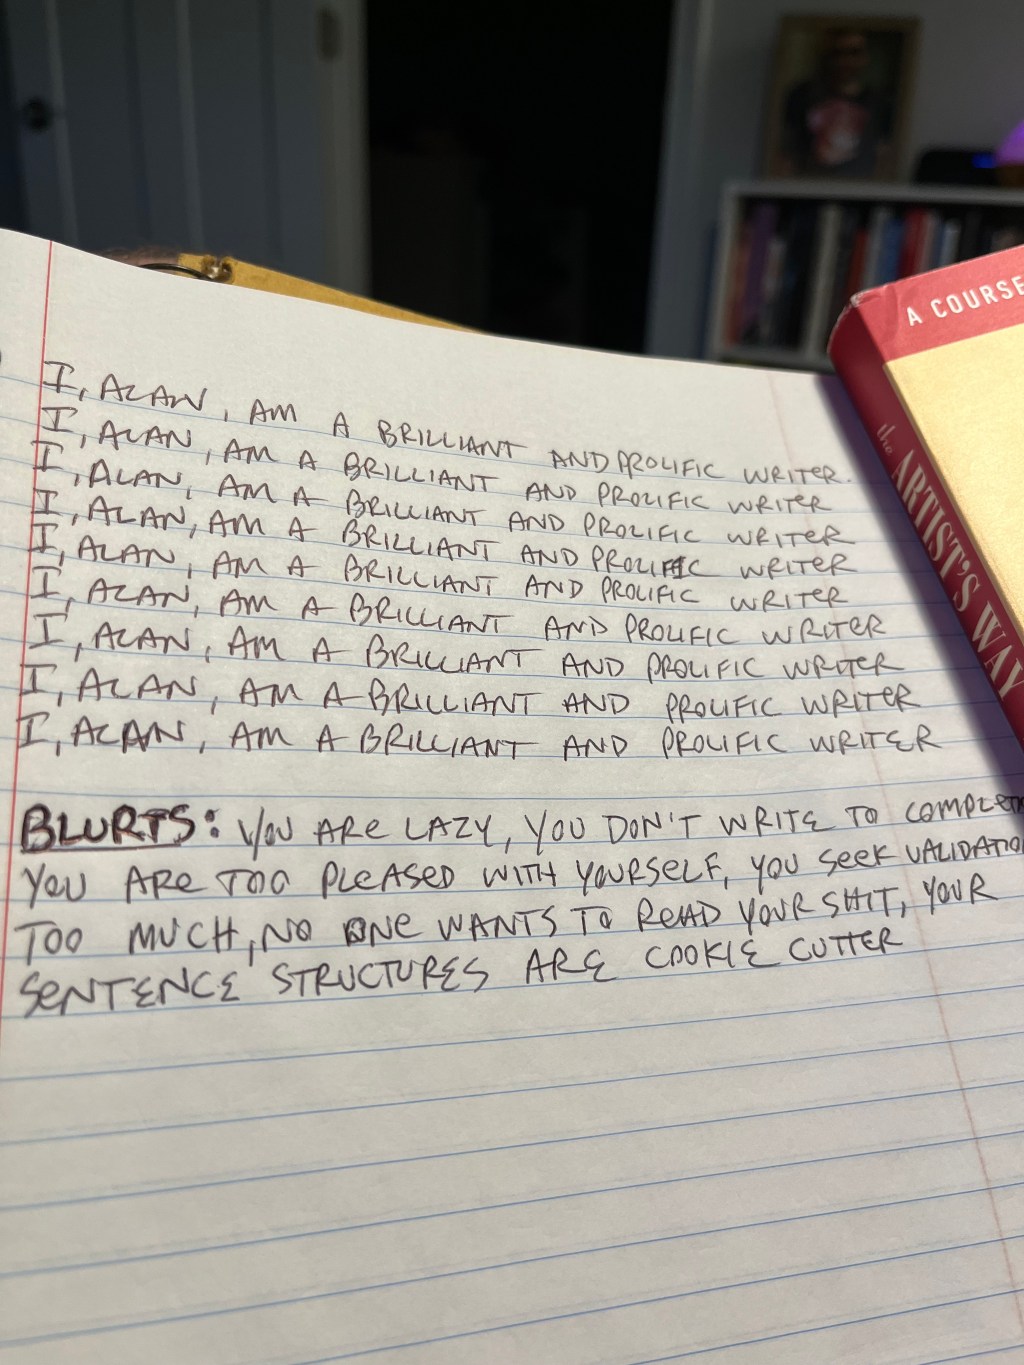 I, ALAN, AM A BRILLIANT AND PROLIFIC WRITER.
I, ALAN, AM A BRILLIANT AND PROLIFIC WRITER
I, ALAN, AM A BRILLIANT AND PROLIFIC WRITER
I, ALAN, AM A BRILLIANT AND PROLIFIC WRITER
I, ALAN, AM A BRILLIANT AND PROLIFIC WRITER
I, ALAN, AM A BRILLIANT AND PROLIFIC WRITER
I, ALAN, AM A BRILLIANT AND PROLIFIC WRITER
I, ALAN, AM A BRILLIANT AND PROLIFIC WRITER
I, ALAN, AM A BRILLIANT AND PROLIFIC WRITER
BLURTS: YOU ARE LAZY, YOU DON'T WRITE TO COMPLET
YOU ARE TOO PLEASED WITH YOURSELF, YOU SEEK VALIDATIO
TOO MUCH, NO ONE WANTS TO READ YOUR SHIT, YOUR
SENTENCE STRUCTURES ARE COOKIE CUTTER
A COURSE
the ARTIST'S WAY